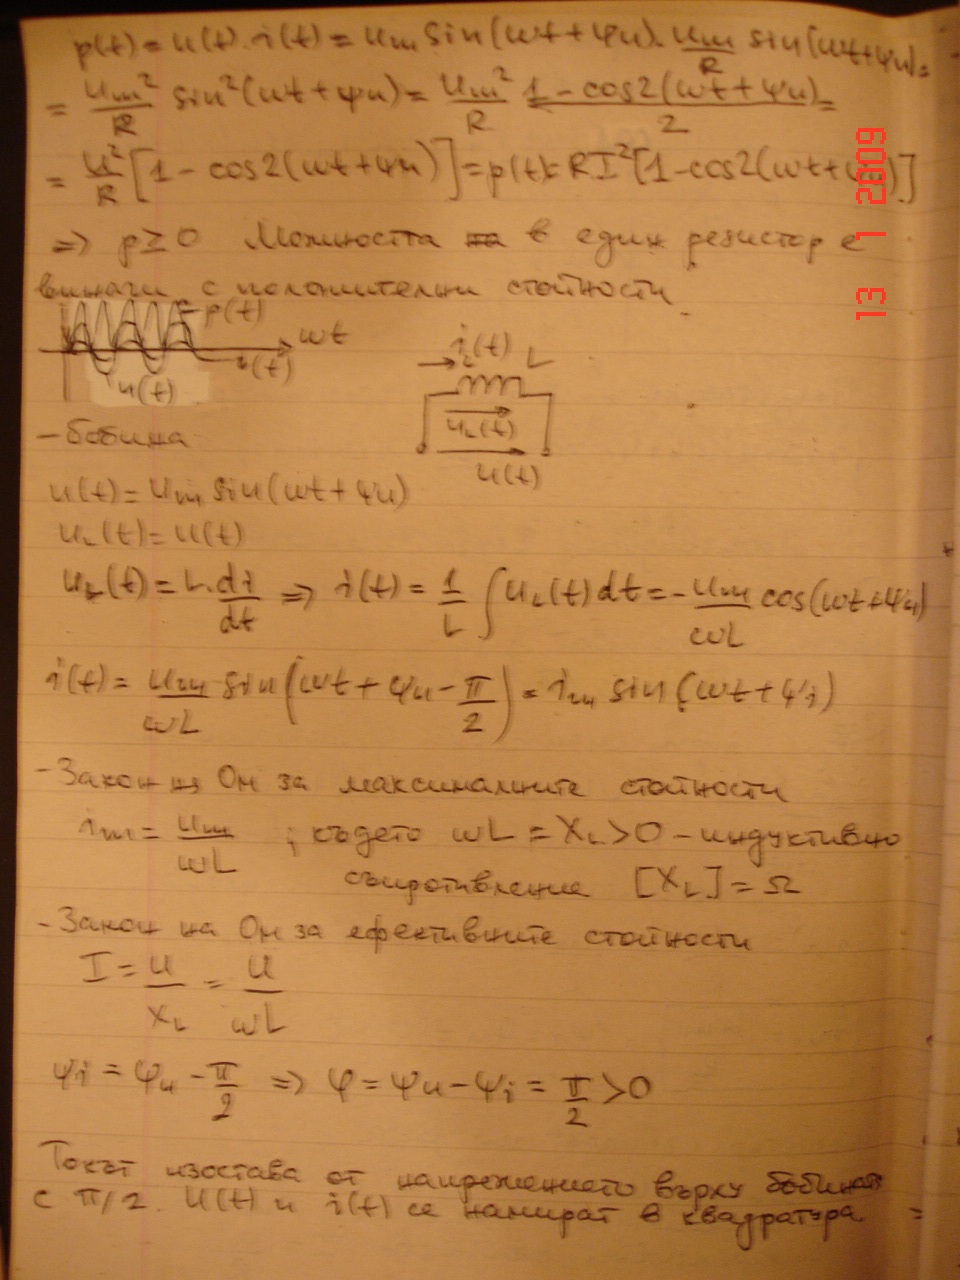 p(t) = u(t). i(t) = um sin(ωt + ψu). um/R sin(ωt+ψu) =
= um²/R sin²(ωt + ψu) = um²/R 1 - cos2(ωt + ψu)/2 =
= U²/R [1 - cos2(ωt+ψu)] = p(t) = RI²[1-cos2(ωt+ψu)]
=> p ≥ 0 Мощността на в един резистор е
винаги с положителни стойности
p(t)
ωt
i(t)
u(t)
iL(t) L
uL(t)
u(t)
- бобина
u(t) = um sin(ωt + ψu)
uL(t) = u(t)
uL(t) = L. di/dt => i(t) = 1/L ∫ uL(t) dt = - um/ωL cos(ωt+ψu)
i(t) = um/ωL sin(ωt + ψu - π/2) = im sin(ωt + ψi)
- Закон на Ом за максималните стойности
im = um/ωL ; където ωL = XL > 0 - индуктивно
съпротивление [XL] = Ω
- Закон на Ом за ефективните стойности
I = U/XL = U/ωL
ψi = ψu - π/2 => φ = ψu - ψi = π/2 > 0
Токът изостава от напрежението върху бобината
с π/2. u(t) и i(t) се намират в квадратура
13 1 2009